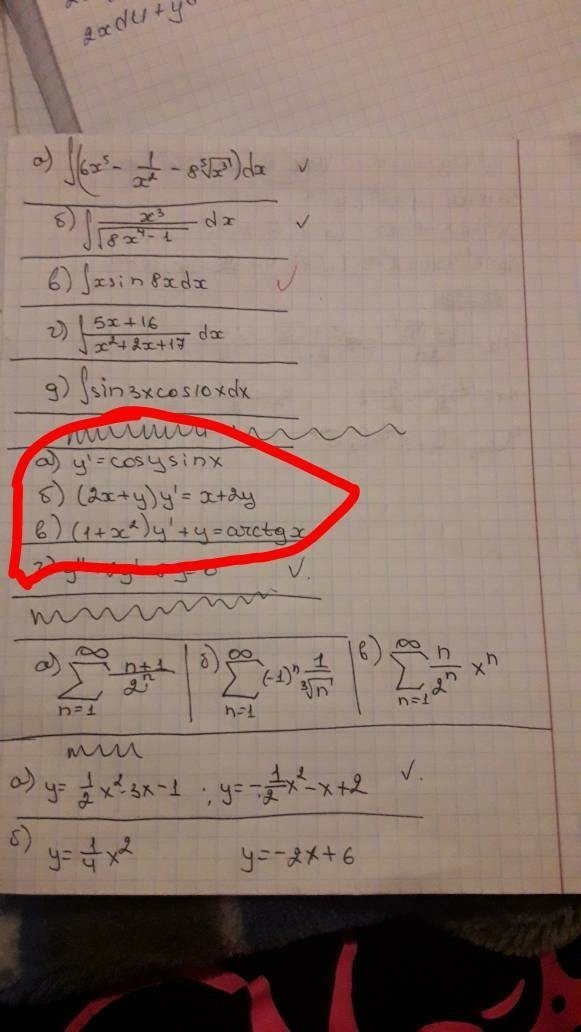 2xdy+y
а) ∫(6x⁵ - 1/x² - 8⁵√x³)dx ✓
б) ∫ x³/√(8x⁴-1) dx ✓
в) ∫xsin8xdx ✓
г) ∫ (5x+16)/(x²+2x+17) dx
д) ∫sin3xcos10xdx
а) y'=cosysinx
б) (2x+y)y'=x+2y
в) (1+x²)y'+y=arctgx
✓.
а) ∑ₙ₌₁^∞ (n+1)/2ⁿ | б) ∑ₙ₌₁^∞ (-1)ⁿ 1/³√n | в) ∑ₙ₌₁^∞ n/2ⁿ xⁿ
а) y=1/2x²-3x-1 ; y=-1/2x²-x+2 ✓.
б) y=1/4x² y=-2x+6